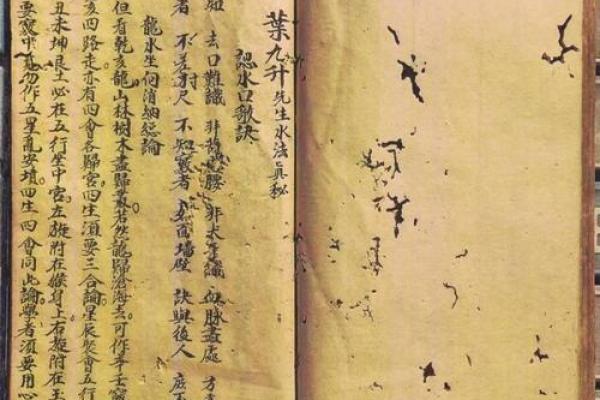 葉九升先生水法真秘
認水口歌訣
去口難識 非背 腰 非大 識 血脉盡處 方
者 不差 尺 不知竅者 如面墙壁 訣與後人 庶
龍水坐向消納總論
但看乾亥龍山林樹木盡歸叢若然龍歸滄海去可作辛壬
亥四路走亦有四會各歸宮四生須要三合論星辰聚會五行
丑未坤艮土必在五行坐中宮左旋附在猴身上右旋附在玉
要竅中 勿作五星亂安墳四生四會同此論學者須要用心